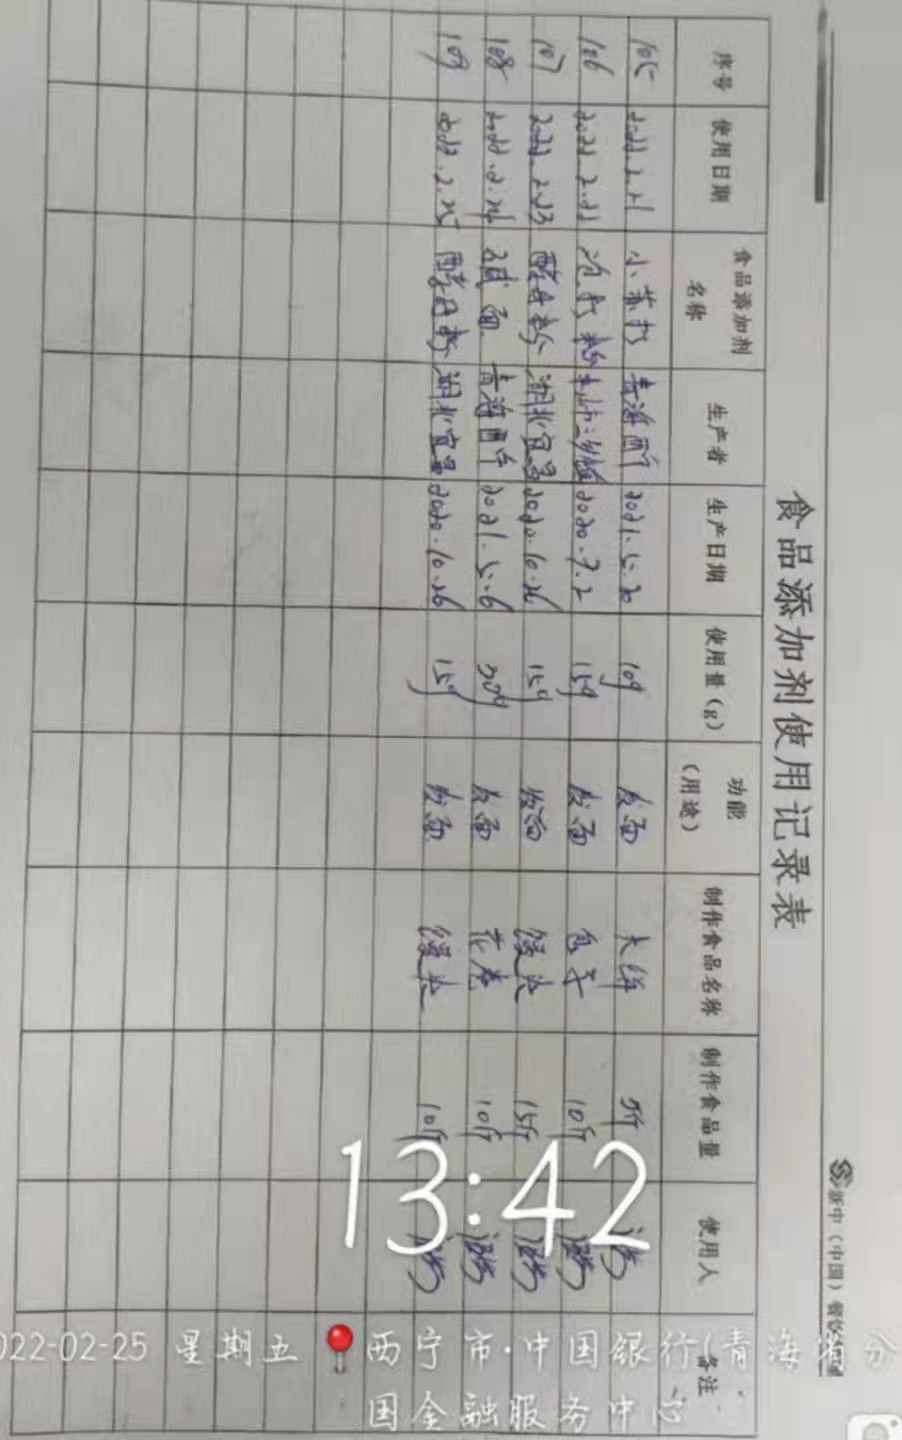 新中（中国）餐饮
食品添加剂使用记录表
序号 使用日期 食品添加剂名称 生产者 生产日期 使用量（g） 功能（用途） 制作食品名称 制作食品量 使用人 备注
105 2022.2.21 小苏打 青海西宁 2021.5.20 10g 发面 大饼 5斤
106 2022.2.22 泡打粉 2020.7.2 15g 发面 包子 10斤
107 2022.2.23 酵母粉 湖北宜昌 2020.10.26 15g 发面 馒头 15斤
108 2022.2.24 碱面 青海西宁 2021.5.6 30g 发面 花卷 10斤
109 2022.2.25 酵母粉 湖北宜昌 2020.10.26 15g 发面 馒头 10斤
13:42
022-02-25 星期五 西宁市·中国银行(青海省分
国金融服务中心